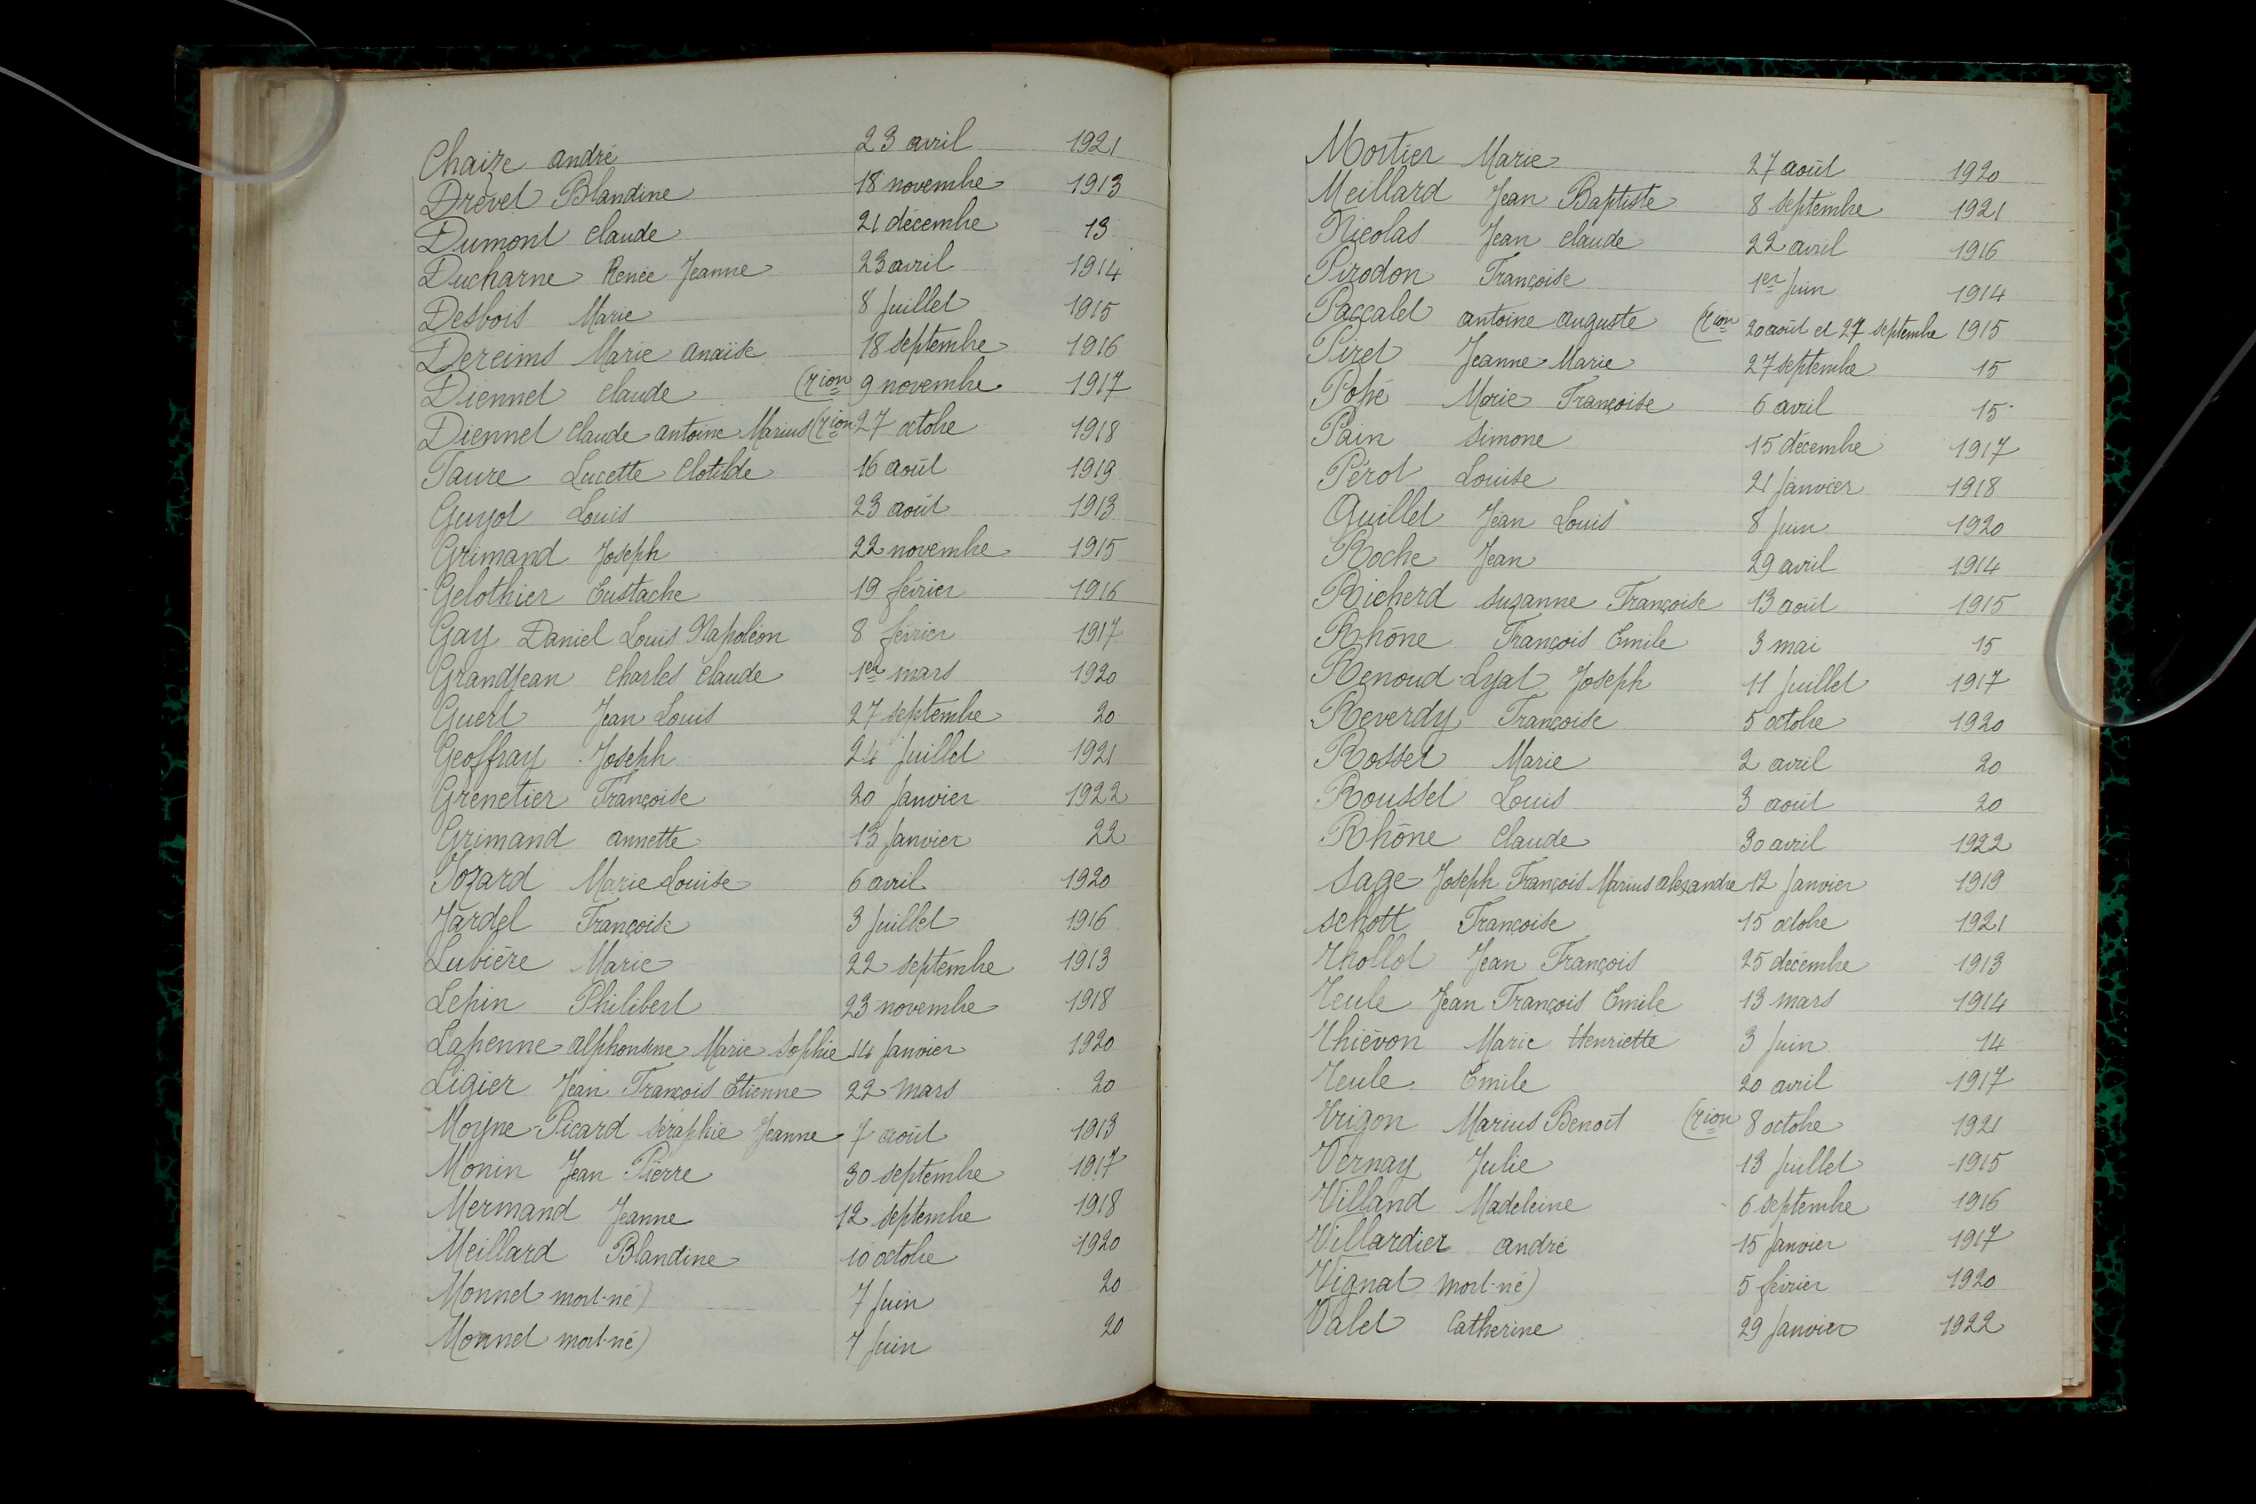 Chaize andré 23 avril 1921
Drevet Blandine 18 novembre 1913
Dumont claude 21 décembre 13
Ducharne Renée Jeanne 23 avril 1914
Desbois Marie 8 Juillet 1915
Dereims Marie anaïse 18 septembre 1916
Diennet claude (rion 9 novembre 1917
Diennet claude antoine Marius (rion 27 octobre 1918
Faure Lucette Clotilde 16 août 1919
Guyot Louis 23 août 1913
Grimand Joseph 22 novembre 1915
Gelothier Eustache 19 février 1916
Gay Daniel Louis Napoléon 8 février 1917
Grandjean Charles Claude 1er mars 1920
Guerl Jean Louis 27 septembre 20
Geoffray Joseph 24 Juillet 1921
Grenetier Françoise 20 Janvier 1922
Grimand annette 13 Janvier 22
Jozard Marie Louise 6 avril 1920
Jardel Françoise 3 Juillet 1916
Lubière Marie 22 septembre 1913
Lepin Philibert 23 novembre 1918
Lapenne alphonsine Marie Sophie 14 Janvier 1920
Ligier Jean François Etienne 22 mars 20
Moyne-Picard séraphie Jeanne 7 août 1913
Monin Jean Pierre 30 septembre 1917
Mermand Jeanne 12 septembre 1918
Meillard Blandine 10 octobre 1920
Monnet mort-né) 7 Juin 20
Monnet mort-né) 7 Juin 20
Mortier Marie 27 août 1920
Meillard Jean Baptiste 8 septembre 1921
Nicolas Jean claude 22 avril 1916
Pirodon Françoise 1er Juin 1914
Paccalet antoine auguste (rion 20 août et 27 septembre 1915
Piret Jeanne Marie 27 septembre 15
Popé Marie Françoise 6 avril 15
Pain Simone 15 décembre 1917
Pérot Louise 21 Janvier 1918
Quillet Jean Louis 8 Juin 1920
Roche Jean 29 avril 1914
Richerd suzanne Françoise 13 août 1915
Rhône François Emile 3 mai 15
Renoud-Lyat Joseph 11 Juillet 1917
Reverdy Françoise 5 octobre 1920
Rosset Marie 2 avril 20
Roussel Louis 3 août 20
Rhône Claude 30 avril 1922
Sage Joseph François Marius alexandre 12 Janvier 1919
schott Françoise 15 octobre 1921
Thollot Jean François 25 décembre 1913
Teule Jean François Emile 13 mars 1914
Thiévon Marie Henriette 3 Juin 14
Teule Emile 20 avril 1917
Trigon Marius Benoît (rion 8 octobre 1921
Vernay Julie 13 Juillet 1915
Villand Madeleine 6 septembre 1916
Villardier andré 15 Janvier 1917
Vignat mort-né) 5 février 1920
Valet Catherine 29 Janvier 1922